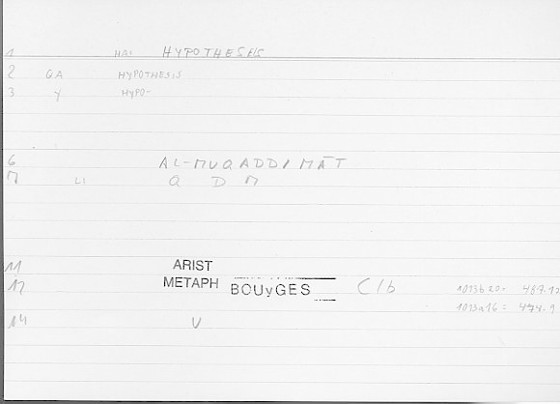 1 HAI HYPOTHESEIS
2 QA HYPOTHESIS
3 Y HYPO-
6 AL-MUQADDIMĀT
7 LI Q D M
11 ARIST
12 METAPH BOUyGES C1b 1013b20= 487.12
1013a16= 474.9
14 V